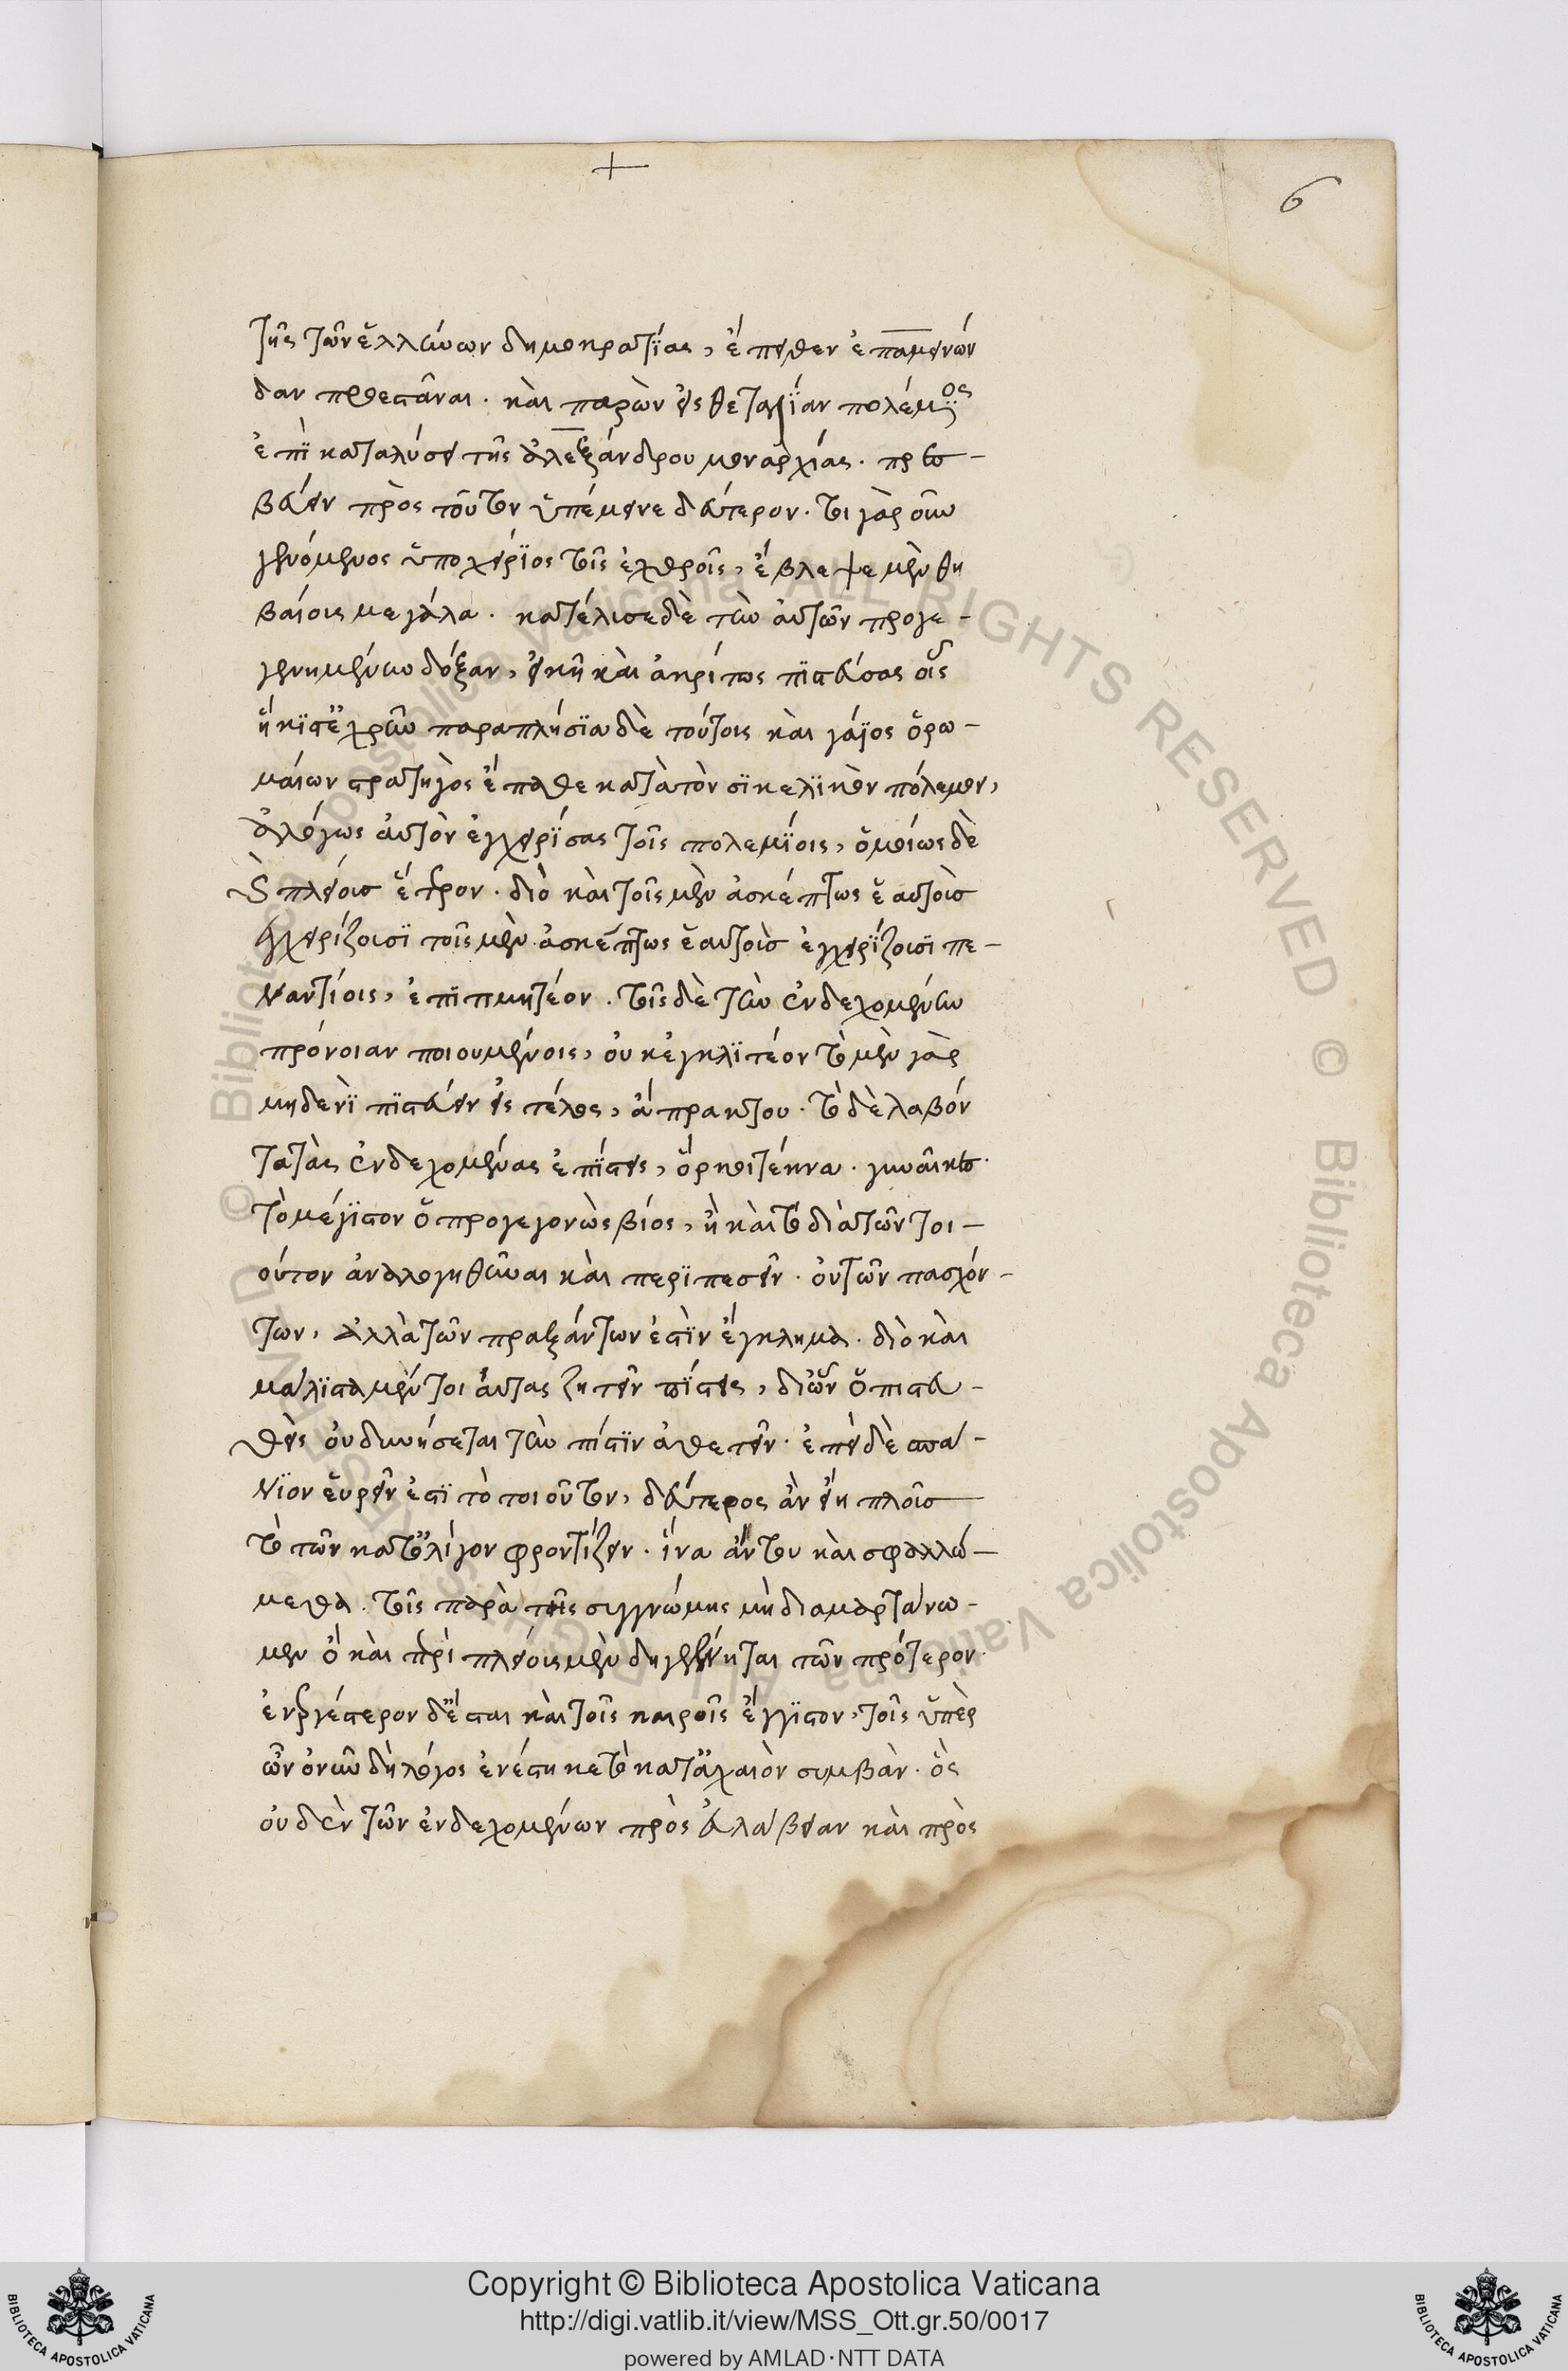 +
6
τῆς τῶν ἑλλήνων δημοκρατΐας, ἔπειθεν ἐπαμεινών
δαν προεστᾶναι. καὶ παρὼν εἰς θεταλΐαν πολέμϊος
ἐπῒ καταλύσει τῆς ἀλεξάνδρου μοναρχίας. πρεσ-
βεύειν πρὸς τοῦτον ὑπέμεινε δεύτερον. τοι γὰρ οῦν
γενόμενος ὑποχείρϊος τοῖς ἐχθροῖς, ἔβλεψε μὲν θη
βαίοις μεγάλα. κατέλισε δὲ τὴν αὐτῶν προγε-
γενημένην δόξαν, εἰκῆ καὶ ἀκρίτως πϊστεύσας οἷς
ἥκϊστ' ἐχρῆν παραπλήσϊα δὲ τούτοις καὶ γάϊος ὁ ρω-
μαίων στρατηγὸς ἔπαθε κατὰ τὸν σϊκελϊκὸν πόλεμον,
ἀλόγως αὐτὸν ἐγχειρΐσας τοῖς πολεμΐοις, ὁμοίως δὲ
ϛ πλείους ἕτερον. διὸ καὶ τοῖς μὲν ἀσκέπτως ἑαυτοὺσ
ἐγχειρίζουσϊ τοῖς μὲν ἀσκέπτως ἑαυτοὺσ ἐγχειρΐζουσϊ πε-
ναντίοις, ἐπϊτιμητέον. τοῖς δὲ τὴν ἐνδεχομένην
πρόνοιαν ποιουμένοις, οὐκ ἐγκλϊτέον τὸ μὲν γὰρ
μηδενῒ πϊστεύειν εἰς τέλος, ἄπρακτου. τὸ δὲ λαβόν
τα τὰς ἐνδεχομένας ἐπΐστεις, ὅρκοι τέκνα. γυναῖκεσ
τὸ μέγϊστον ὁ προγεγονὼς βίος, ἢ καὶ τὸ διὰ τῶν τοι-
ούτον ἀναλογηθῆναι καὶ περϊπεσεῖν. οὐ τῶν πασχόν-
των, ἀλλὰ τῶν πραξάντων ἐστῒν ἔγκλημα. διὸ καὶ
μάλϊστα μέν τοι αὐτας ζητεῖν πΐστεις, δι ὧν ὁ πιστευ-
θεὶς οὐ δυνήσεται τὴν πίστϊν ἀθετεῖν. ἐπεὶ δὲ σπά-
νϊον εὑρεῖν ἐστῒ τὸ τοιοῦτον, δεύτερος ἂν εἴη πλοῦσ
τὸ τῶν κατ' ὀλίγον φροντίζειν. ἵνα ἄν του καὶ σφαλλώ-
μεθα. τοῖς παρὰ τῆς συγγνώμης μὴ διαμαρτάνω-
μεν ὃ καὶ περὶ πλείους μὲν δὴ γεγένηται τῶν πρότερον
ἐνεργέστερον δ' ἔσται καὶ τοῖς καιροῖς ἔγγϊστον, τοῖς ὑπὲρ
ὧν ὁ νῦν δὴ λόγος ἐνέστηκε τὸ κατ' ἀχαιὸν συμβὰν. ὃς
οὐδὲν τῶν ἐνδεχομένων πρὸς εὐλάβειαν καὶ πρὸς
© Biblioteca Apostolica Vaticana ALL RIGHTS RESERVED
Copyright © Biblioteca Apostolica Vaticana
http://digi.vatlib.it/view/MSS_Ott.gr.50/0017
powered by AMLAD·NTT DATA
BIBLIOTECA APOSTOLICA VATICANA
BIBLIOTECA APOSTOLICA VATICANA